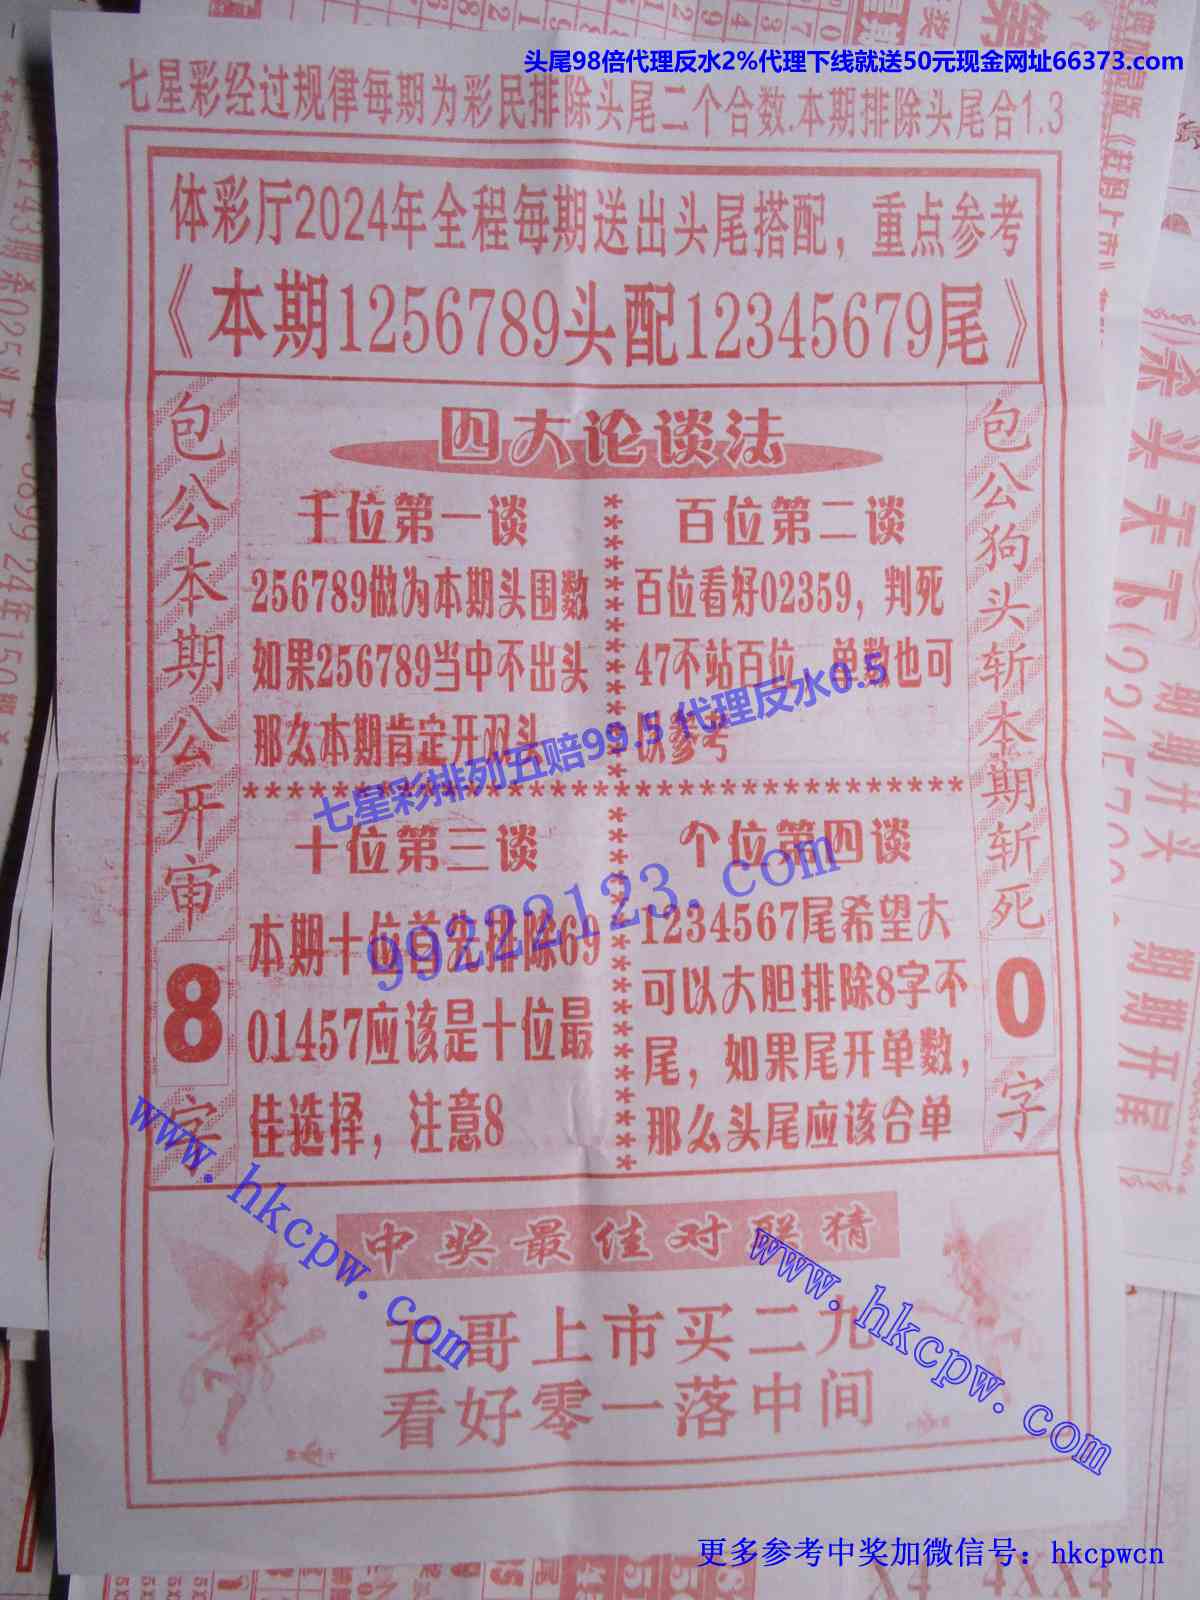 头尾98倍代理反水2%代理下线就送50元现金网址66373.com
七星彩经过规律每期为彩民排除头尾二个合数.本期排除头尾合1.3
体彩厅2024年全程每期送出头尾搭配，重点参考
《本期1256789头配12345679尾》
包公本期公开审
8
字
四大论谈法
千位第一谈
256789做为本期头围数
如果256789当中不出头
那么本期肯定开双头
百位第二谈
百位看好02359，判死
47不站百位，单数也可
供参考
七星彩排列五赔99.5 代理反水0.5
99222123.com
十位第三谈
本期十位首先排除69
01457应该是十位最
佳选择，注意8
个位第四谈
1234567尾希望大
可以大胆排除8字不
尾，如果尾开单数，
那么头尾应该合单
包公狗头斩本期斩死
0
字
www.hkcpw.com
www.hkcpw.com
中奖最佳对联猜
五哥上市买二九
看好零一落中间
更多参考中奖加微信号：hkcpwcn
期期开头
期期开尾